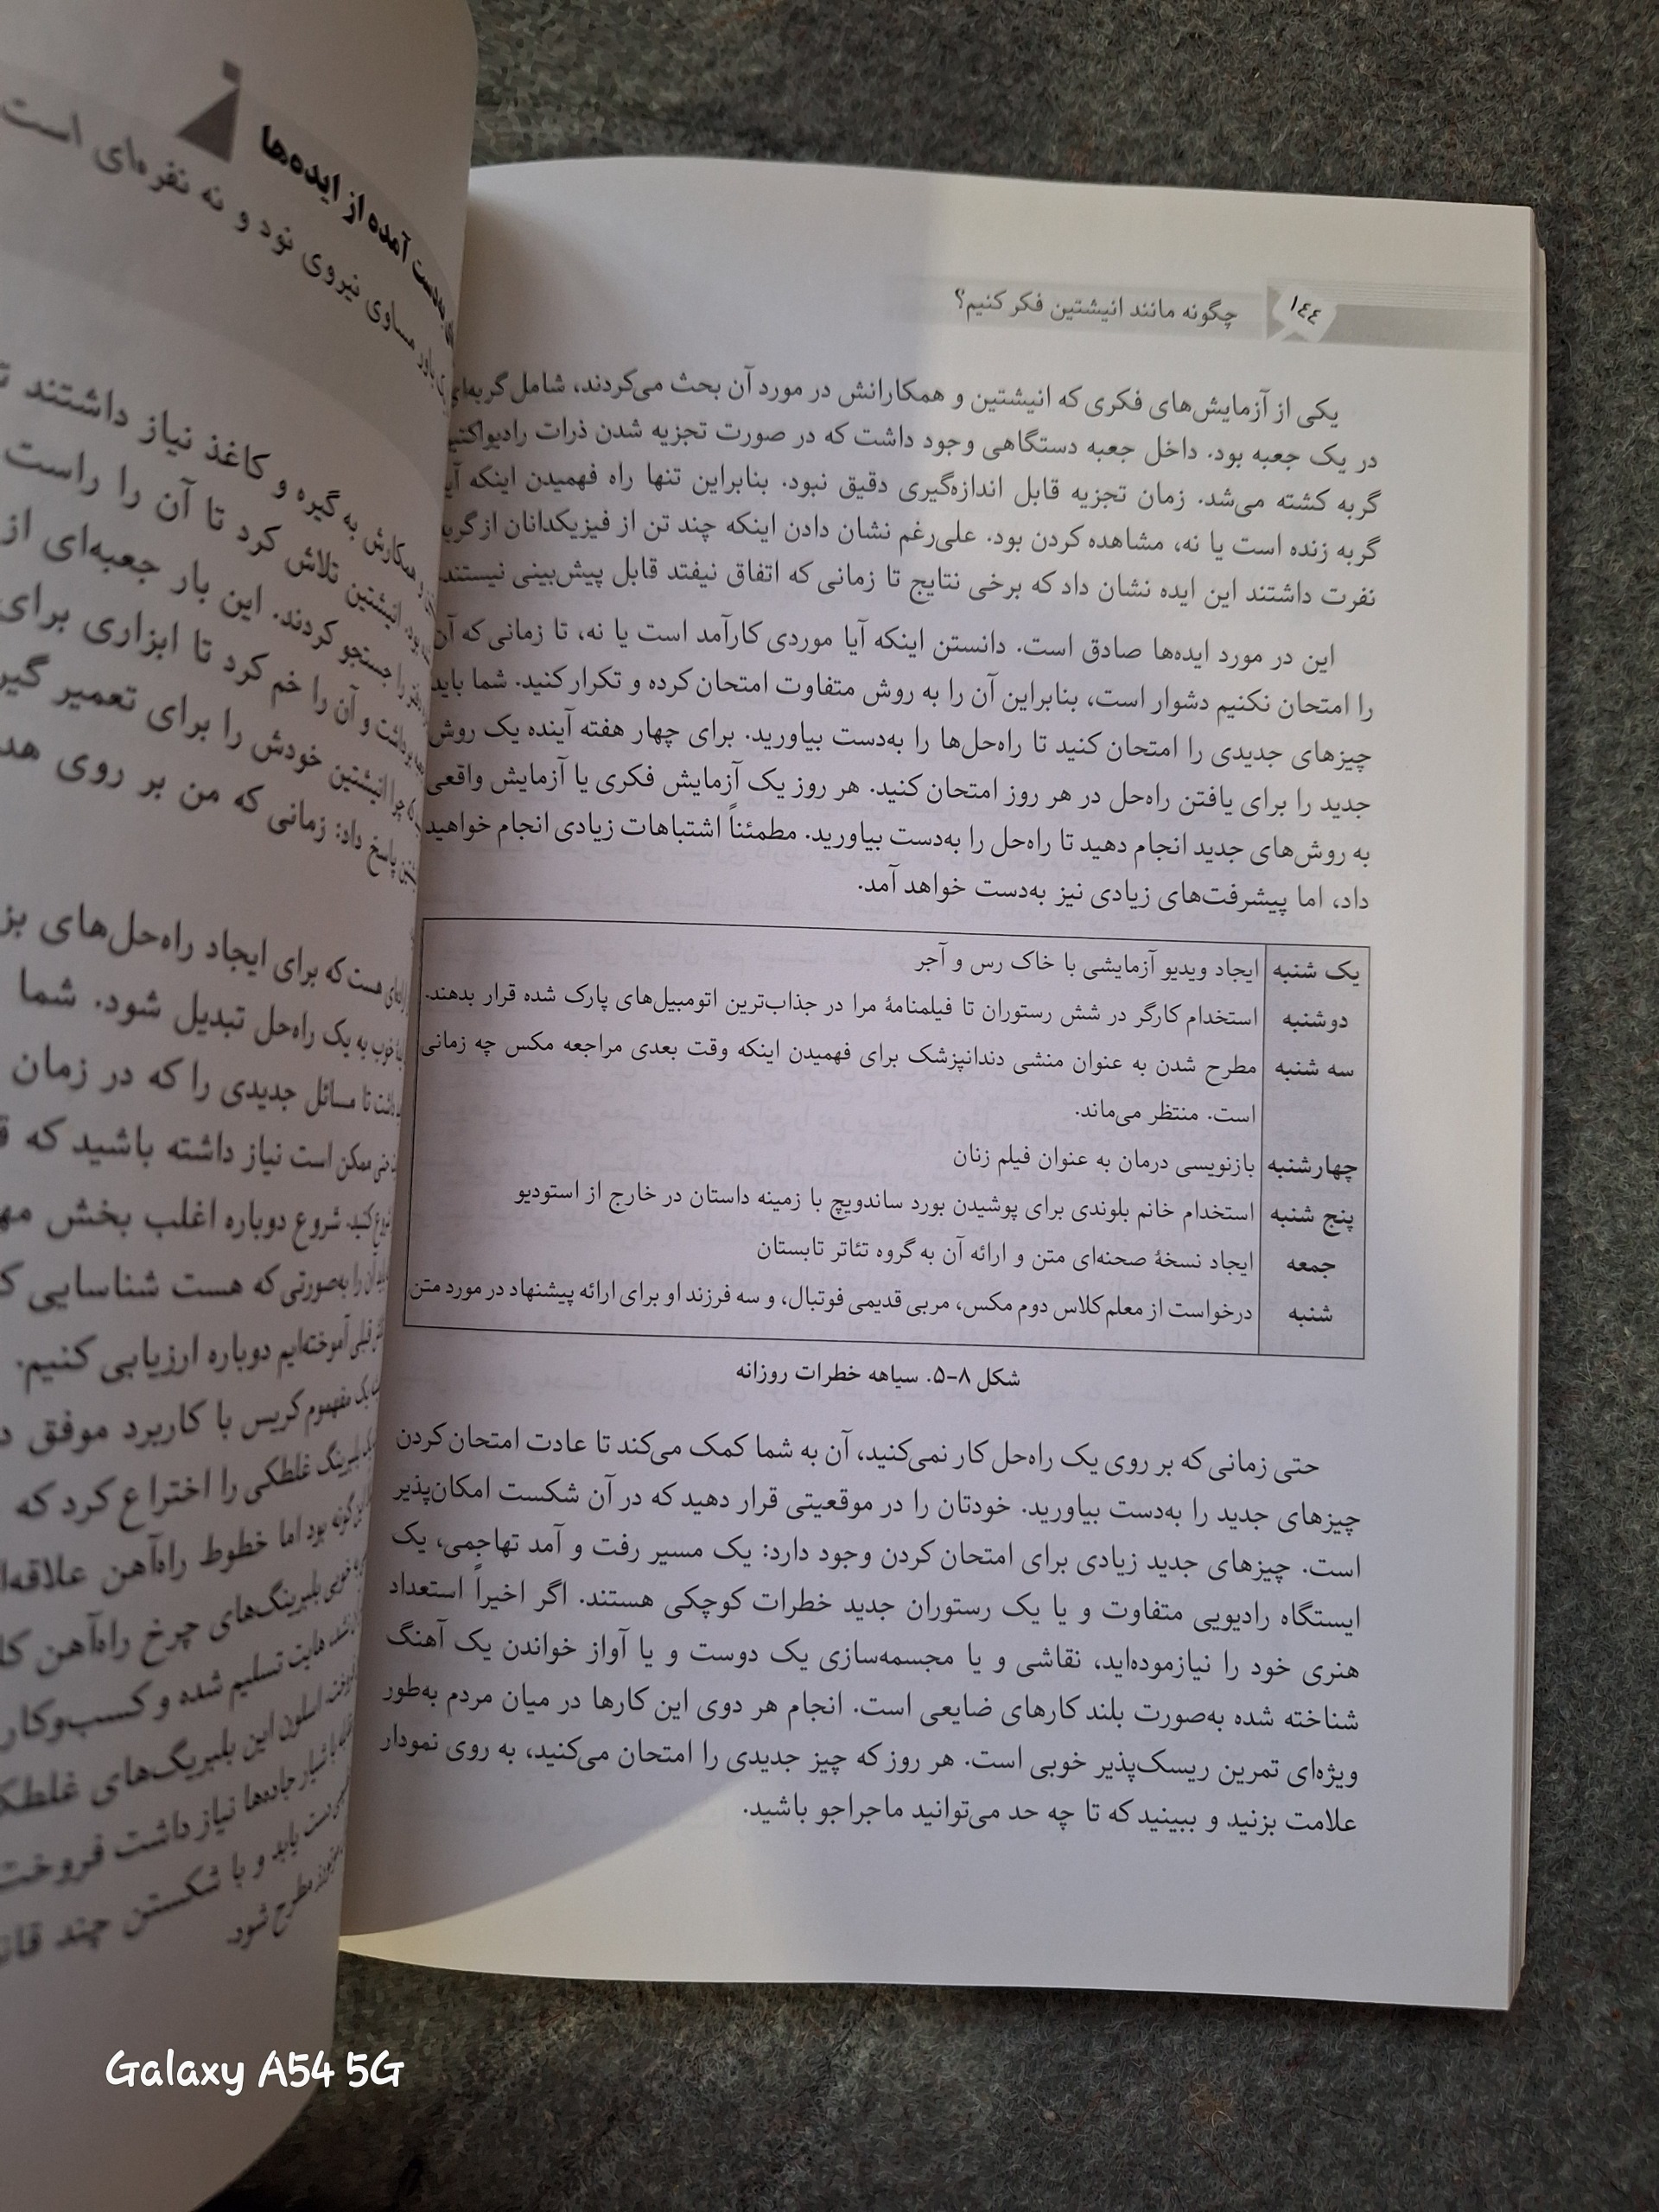 ١٤٤
چگونه مانند انیشتین فکر کنیم؟
یکی از آزمایش‌های فکری که انیشتین و همکارانش در مورد آن بحث می‌کردند، شامل گربه‌ای
در یک جعبه بود. داخل جعبه دستگاهی وجود داشت که در صورت تجزیه شدن ذرات رادیواکتیو
گربه کشته می‌شد. زمان تجزیه قابل اندازه‌گیری دقیق نبود. بنابراین تنها راه فهمیدن اینکه آیا
گربه زنده است یا نه، مشاهده کردن بود. علی‌رغم نشان دادن اینکه چند تن از فیزیکدانان از گربه
نفرت داشتند این ایده نشان داد که برخی نتایج تا زمانی که اتفاق نیفتد قابل پیش‌بینی نیستند.
این در مورد ایده‌ها صادق است. دانستن اینکه آیا موردی کارآمد است یا نه، تا زمانی که آن
را امتحان نکنیم دشوار است، بنابراین آن را به روش متفاوت امتحان کرده و تکرار کنید. شما باید
چیزهای جدیدی را امتحان کنید تا راه‌حل‌ها را به‌دست بیاورید. برای چهار هفته آینده یک روش
جدید را برای یافتن راه‌حل در هر روز امتحان کنید. هر روز یک آزمایش فکری یا آزمایش واقعی
به روش‌های جدید انجام دهید تا راه‌حل را به‌دست بیاورید. مطمئناً اشتباهات زیادی انجام خواهید
داد، اما پیشرفت‌های زیادی نیز به‌دست خواهد آمد.
یک شنبه ایجاد ویدیو آزمایشی با خاک رس و آجر
دوشنبه استخدام کارگر در شش رستوران تا فیلمنامهٔ مرا در جذاب‌ترین اتومبیل‌های پارک شده قرار بدهند.
سه شنبه مطرح شدن به عنوان منشی دندانپزشک برای فهمیدن اینکه وقت بعدی مراجعه مکس چه زمانی
است. منتظر می‌ماند.
چهارشنبه بازنویسی درمان به عنوان فیلم زنان
پنج شنبه استخدام خانم بلوندی برای پوشیدن بورد ساندویچ با زمینه داستان در خارج از استودیو
جمعه ایجاد نسخهٔ صحنه‌ای متن و ارائه آن به گروه تئاتر تابستان
شنبه درخواست از معلم کلاس دوم مکس، مربی قدیمی فوتبال، و سه فرزند او برای ارائه پیشنهاد در مورد متن
شکل ۸-۵. سیاهه خطرات روزانه
حتی زمانی که بر روی یک راه‌حل کار نمی‌کنید، آن به شما کمک می‌کند تا عادت امتحان کردن
چیزهای جدید را به‌دست بیاورید. خودتان را در موقعیتی قرار دهید که در آن شکست امکان‌پذیر
است. چیزهای جدید زیادی برای امتحان کردن وجود دارد: یک مسیر رفت و آمد تهاجمی، یک
ایستگاه رادیویی متفاوت و یا یک رستوران جدید خطرات کوچکی هستند. اگر اخیراً استعداد
هنری خود را نیازموده‌اید، نقاشی و یا مجسمه‌سازی یک دوست و یا آواز خواندن یک آهنگ
شناخته شده به‌صورت بلند کارهای ضایعی است. انجام هر دوی این کارها در میان مردم به‌طور
ویژه‌ای تمرین ریسک‌پذیر خوبی است. هر روز که چیز جدیدی را امتحان می‌کنید، به روی نمودار
علامت بزنید و ببینید که تا چه حد می‌توانید ماجراجو باشید.
دست آمده از ایده‌ها
باور مساوی نیروی نود و نه نفره‌ای است
همکارش به گیره و کاغذ نیاز داشتند
بود. انیشتین تلاش کرد تا آن را راست
را جستجو کردند. این بار جعبه‌ای از
برداشت و آن را خم کرد تا ابزاری برای
چرا انیشتین خودش را برای تعمیر
پاسخ داد: زمانی که من بر روی
هست که برای ایجاد راه‌حل‌های
خوب به یک راه‌حل تبدیل شود. شما
تا مسائل جدیدی را که در زمان
ممکن است نیاز داشته باشید که
کنید. شروع دوباره اغلب بخش
آن را به‌صورتی که هست شناسایی
قبلی آموخته‌ایم دوباره ارزیابی کنیم.
یک مفهوم کریس با کاربرد موفق
بلبرینگ غلطکی را اختراع کرد که
گونه بود اما خطوط راه‌آهن
بلبرینگ‌های چرخ راه‌آهن
هایت تسلیم شده و کسب‌وکار
اسلون این بلبریگ‌های
جاده‌ها نیاز داشت فروخت
دست یابد و با شکستن چند
مطرح شود.
Galaxy A54 5G